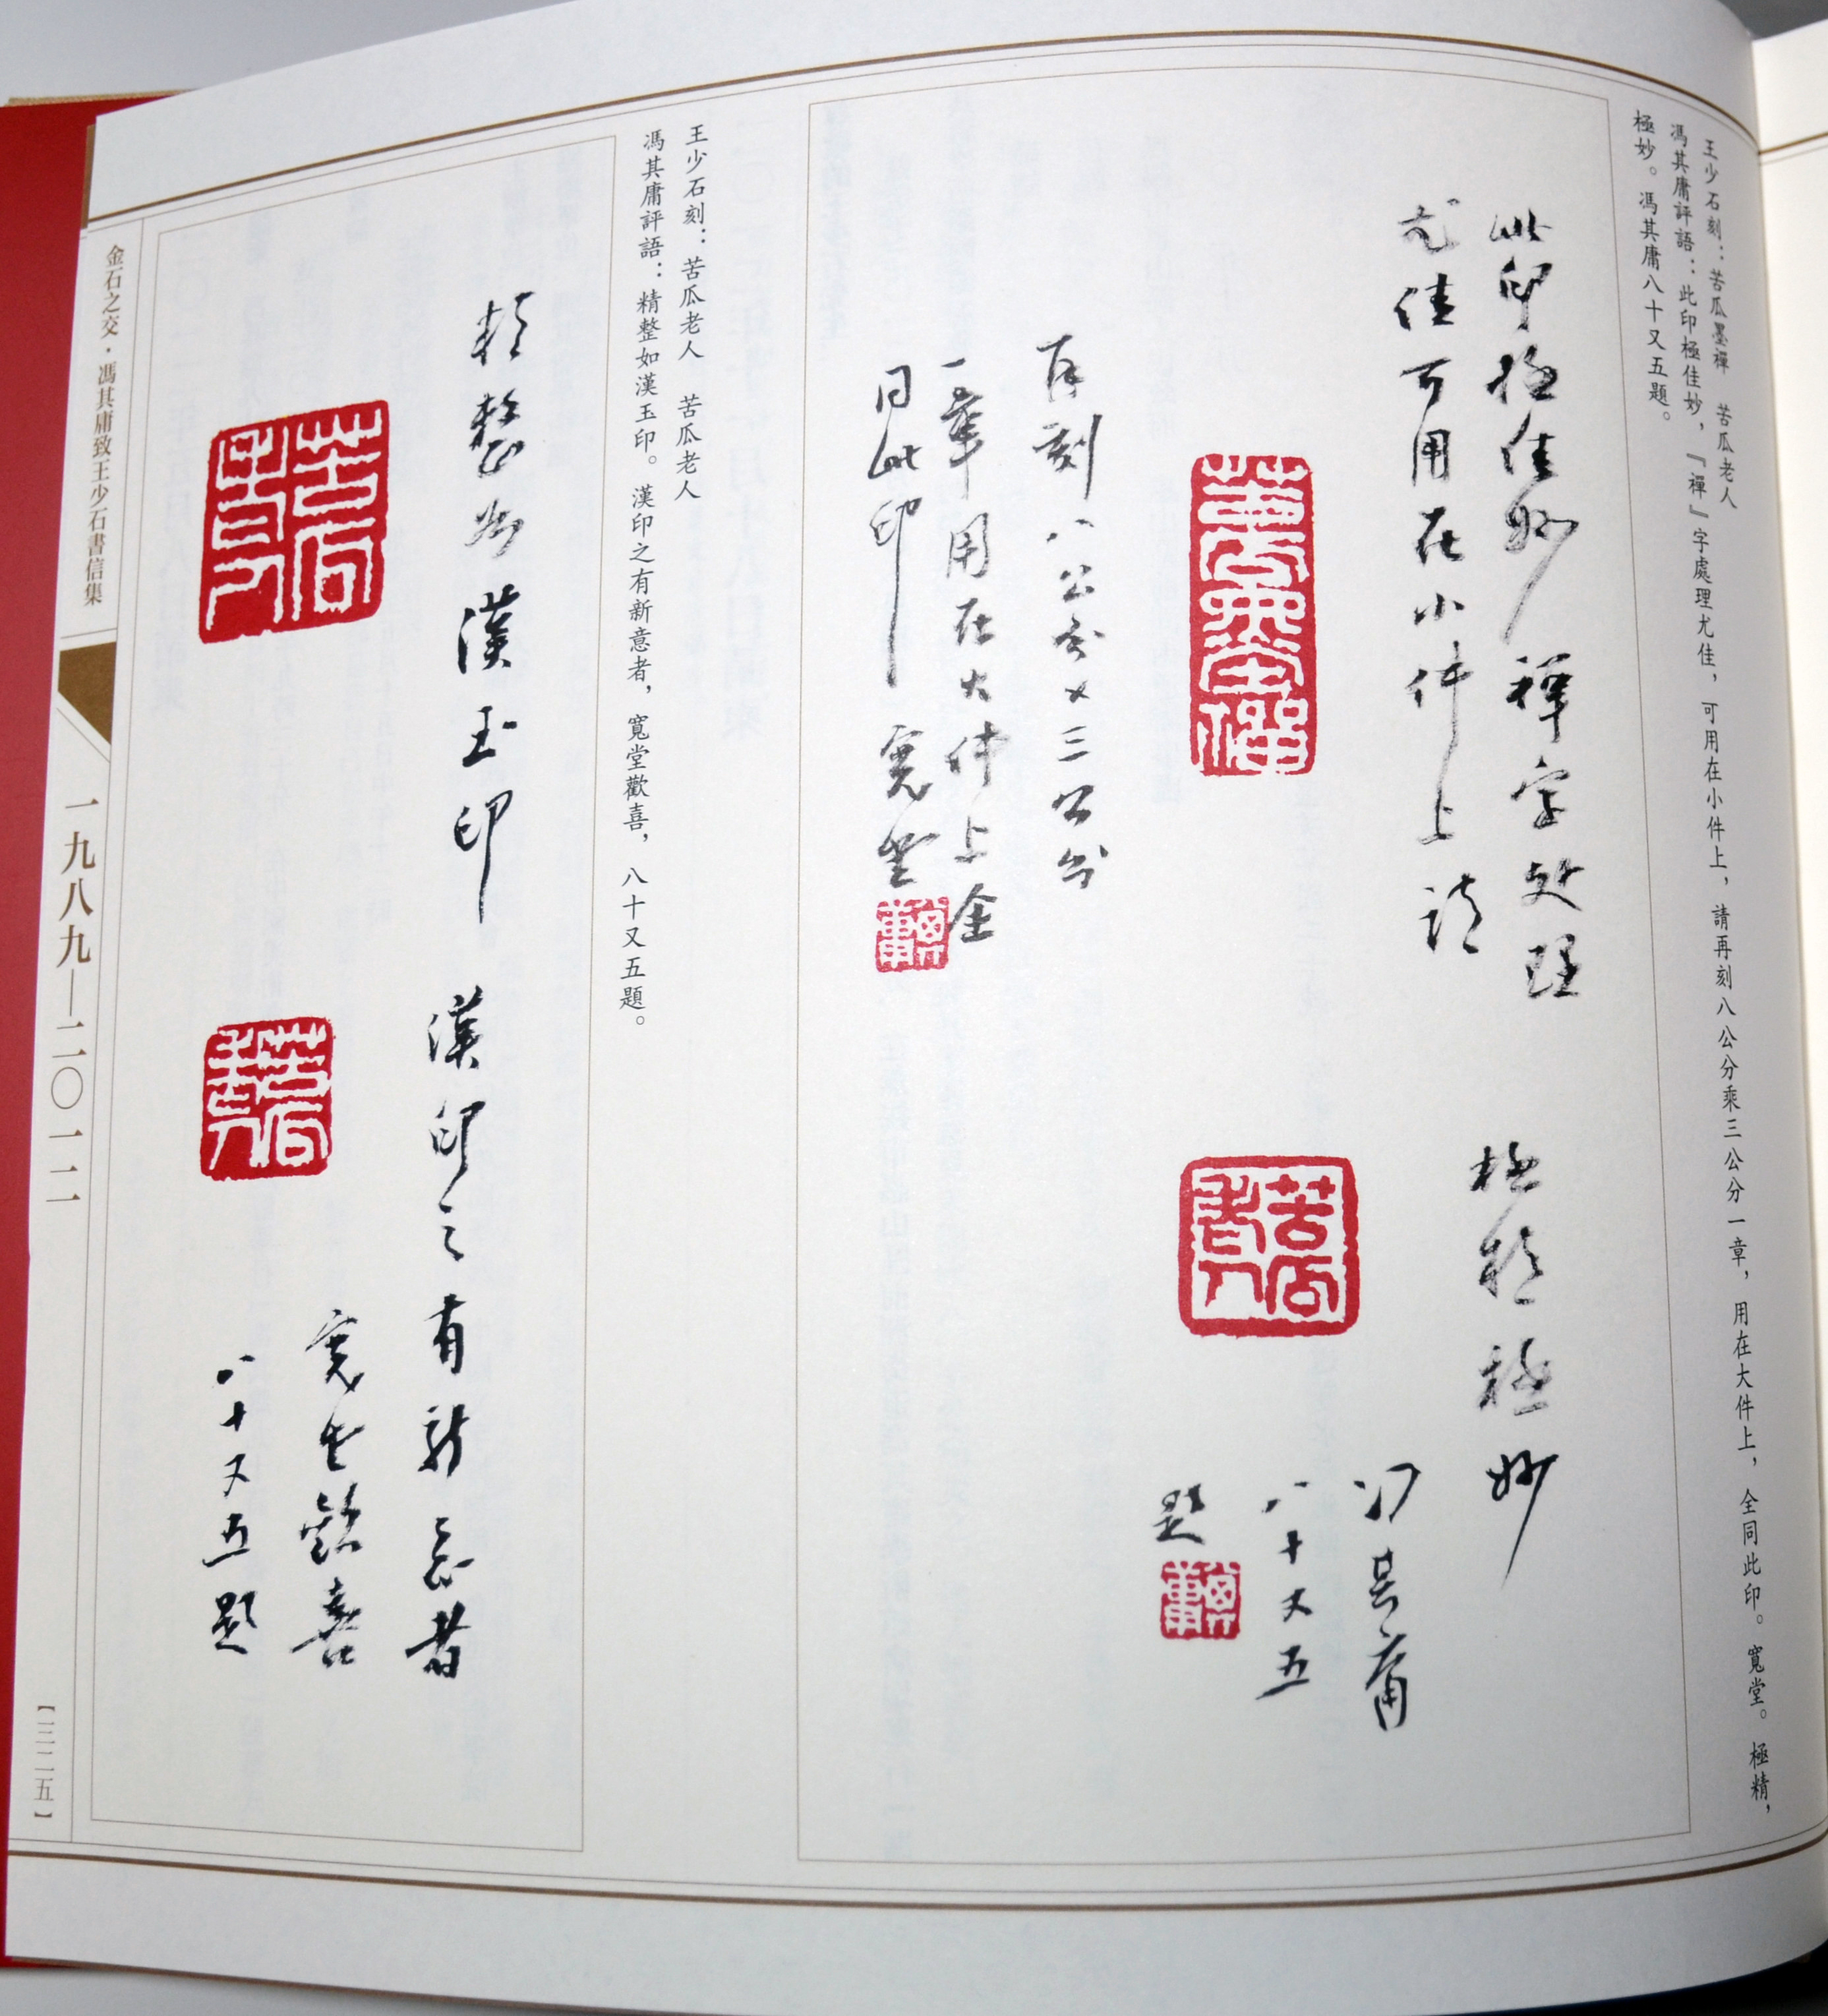 王少石刻：苦瓜墨禪　苦瓜老人
馮其庸評語：此印極佳妙，『禪』字處理尤佳，可用在小件上，請再刻八公分乘三公分一章，用在大件上，全同此印。寬堂。極精，
極妙。馮其庸八十又五題。
此印极佳妙禅字处理
尤佳可用在小件上请
再刻八公分×三公分
一章用在大件上全
同此印 寬堂
极精极妙
冯其庸
八十又五
题
王少石刻：苦瓜老人　苦瓜老人
馮其庸評語：精整如漢玉印。漢印之有新意者，寬堂歡喜，八十又五題。
精整如漢玉印
漢印之有新意者
寬堂歡喜
八十又五題
金石之交·馮其庸致王少石書信集
一九八九—二〇一二